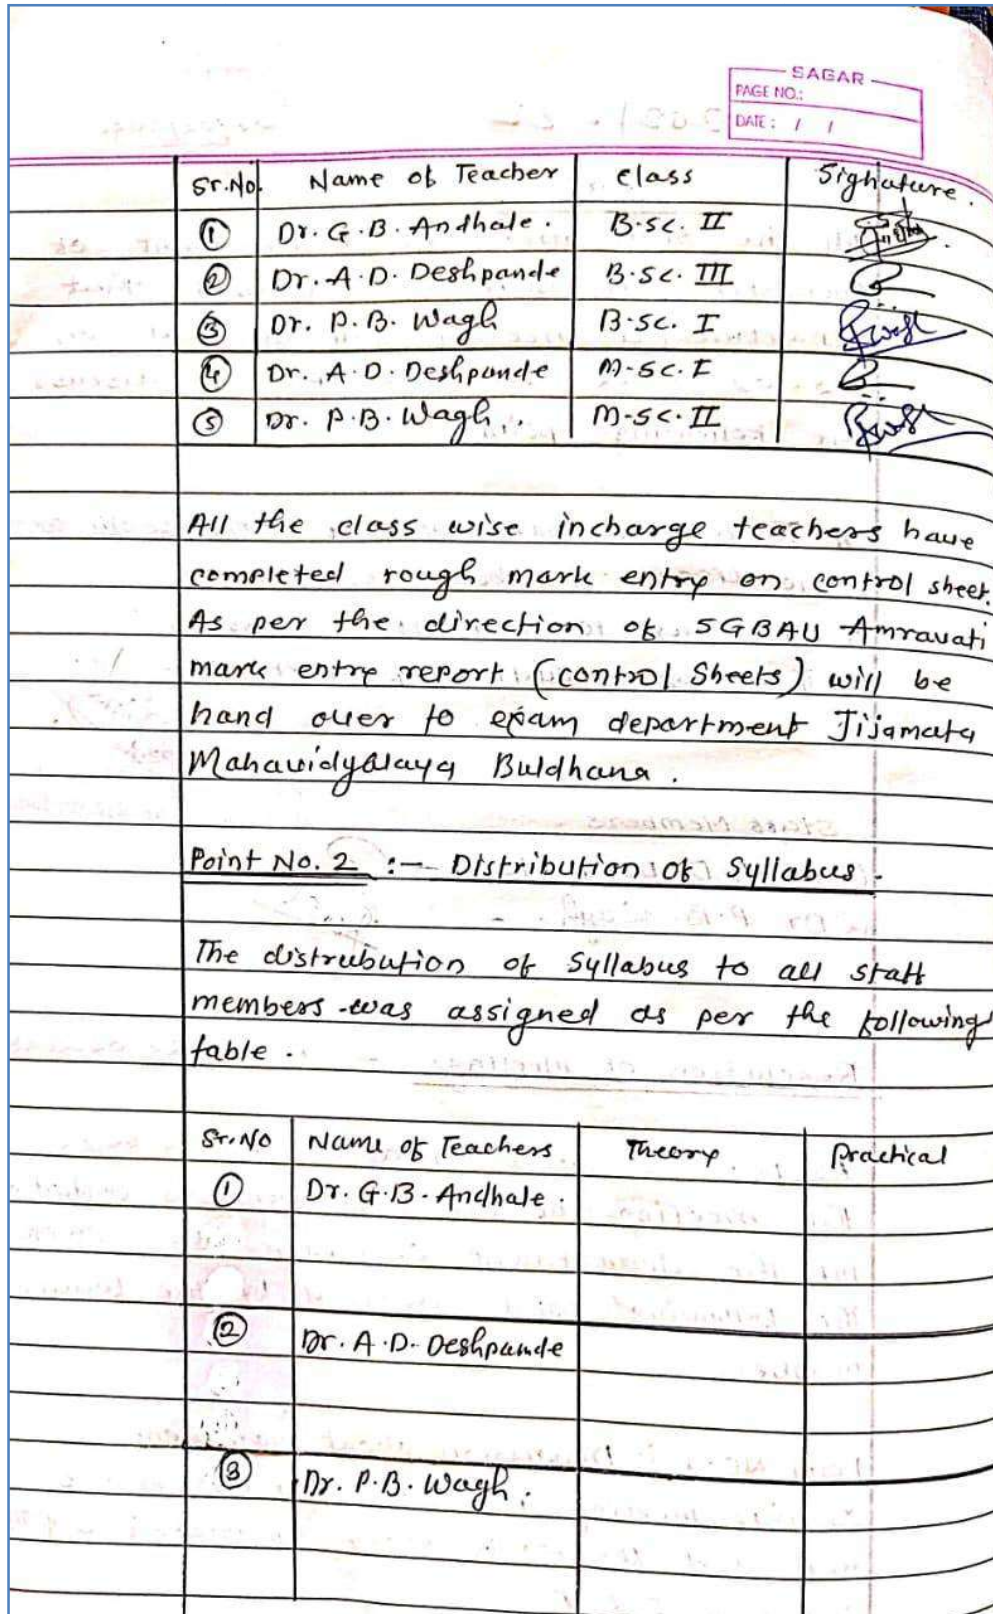 SAGAR
PAGE NO.:
DATE: / /
Sr.No. Name of Teacher class Sighature.
① Dr. G. B. Andhale. B.sc. II
② Dr. A. D. Deshpande B.sc. III
③ Dr. P. B. Wagh B.sc. I
④ Dr. A. D. Deshpande M.sc. I
⑤ Dr. P. B. Wagh. M.sc. II
All the class wise incharge teachers have
completed rough mark entry on control sheet.
As per the direction of SGBAU Amravati
mark entry report (control Sheets) will be
hand over to exam department Jijamata
Mahavidyalaya Buldhana.
Point No. 2 :- Distribution of Syllabus.
The distrubution of Syllabus to all staff
members was assigned as per the following
table.
Sr.No Name of Teachers Theory practical
① Dr. G.B. Andhale.
② Dr. A.D. Deshpande
③ Dr. P.B. Wagh.